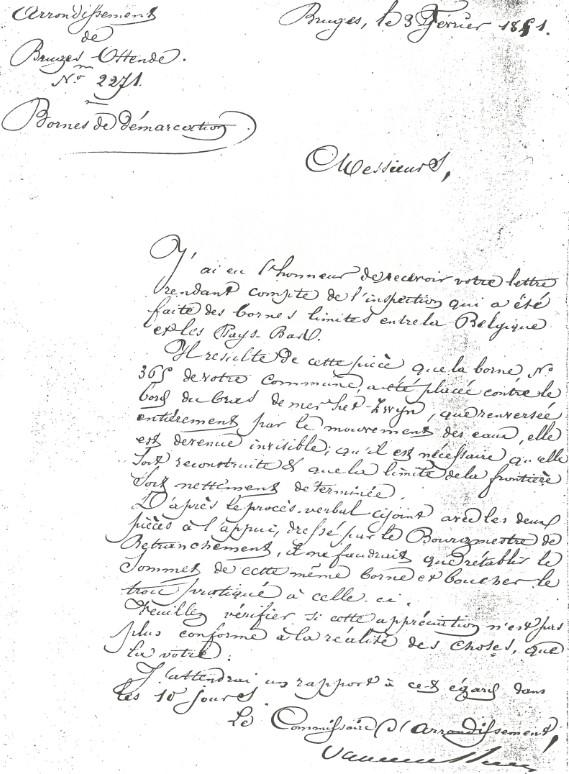 Arrondissement
de
Bruges Ostende.
No 2271.
Bornes de démarcation
Bruges, le 3 Février 1851.
Messieurs,
J'ai eu l'honneur de recevoir votre lettre
rendant compte de l'inspection qui a été
faite des bornes limites entre la Belgique
et les Pays-Bas.
Il resulte de cette pièce que la borne No
365 de votre commune, a été placée contre le
bord du bras de mer het Zwyn, que renversée
entièrement par le mouvement des eaux, elle
est devenue invisible; qu'il est nécessaire qu'elle
soit reconstruite & que la limite de la frontière
soit nettement determinée.
D'après le procès-verbal cijoint avec les deux
pièces à l'appui, dressé par le Bourgmestre de
Retranchement, il ne faudrait que rétablir le
sommet de cette même borne et boucher le
trou pratiqué à celle ci.
Veuillez vérifier si cette appréciation n'est pas
plus conforme à la réalité des choses, que
la votre.
J'attendrai un rapport à cet égard dans
les 10 jours.
Le Commissaire d'arrondissement,